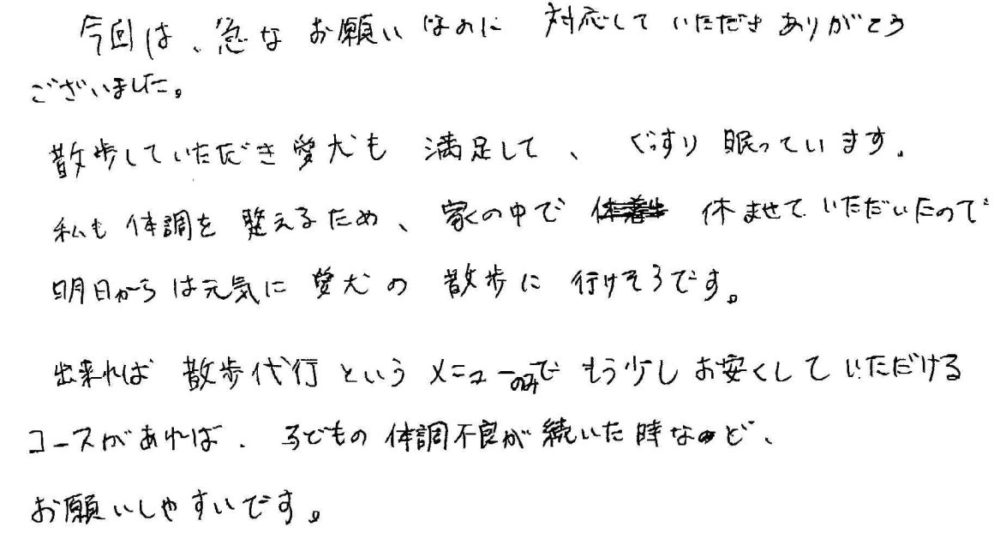 今回は、急なお願いなのに 対応していただきありがとう
ございました。
散歩していただき愛犬も 満足して、ぐっすり眠っています。
私も体調を整えるため、家の中で 休ませていただいたので
明日からは元気に愛犬の散歩に行けそうです。
出来れば散歩代行というメニューのみで もう少しお安くしていただける
コースがあれば、子どもの体調不良が続いた時など、
お願いしやすいです。